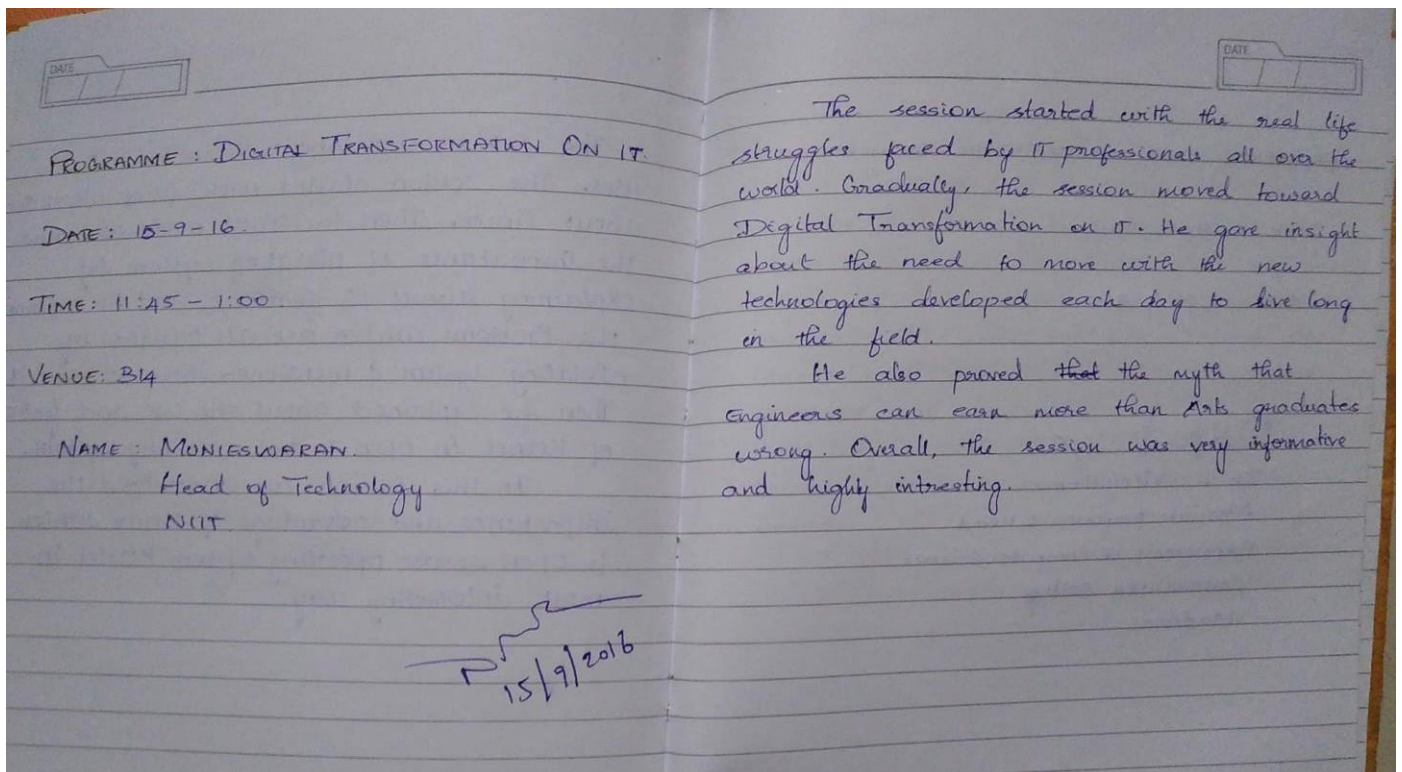 DATE
PROGRAMME : DIGITAL TRANSFORMATION ON IT.
DATE : 15-9-16.
TIME : 11:45 - 1:00
VENUE : B14
NAME : MUNIESWARAN.
Head of Technology
NIIT
15/9/2016
DATE
The session started with the real life
struggles faced by IT professionals all over the
world. Gradually, the session moved toward
Digital Transformation on IT. He gave insight
about the need to move with the new
technologies developed each day to live long
in the field.
He also proved that the myth that
Engineers can earn more than Arts graduates
wrong. Overall, the session was very informative
and highly intresting.